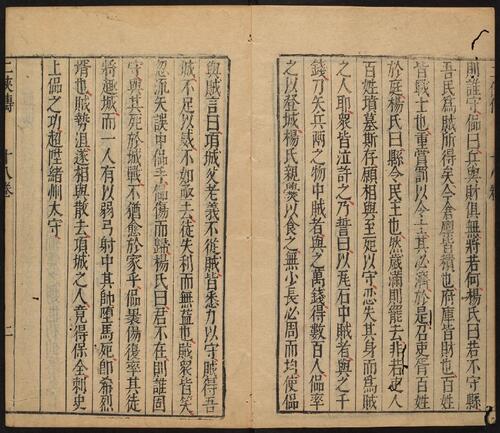 則誰守侃曰兵與財俱無將若何楊氏曰若不守縣
吾民爲賊所得矣今倉廩皆積也府庫皆財也百姓
皆戰士也重賞罰以令士其必濟於是召吏胥百姓
於庭楊氏曰縣令民主也然歲滿則罷去非若吏人
百姓墳墓斯存願相與至死以守忍失其身而爲賊
之人耶衆皆泣許之乃誓曰以瓦石中賊者與之千
錢刀矢兵兩之物中賊者與之萬錢得數百人侃率
之以登城楊氏親爨以食之無少長必周而均使侃
與賊言曰項城父老義不從賊皆悉力以守賊得吾
城不足以威不如亟去徒失利而無益也賊衆皆笑
忽流矢誤中侃手侃傷而歸楊氏曰君不在則誰固
守與其死於城戰不猶愈於家乎侃裹傷復率其徒
將趣城而一人有以弱弓射中其帥墮馬死即希烈
壻也賊勢沮遂相與散去項城之人竟得保全刺史
上侃之功超陞緒州太守
十八卷
二